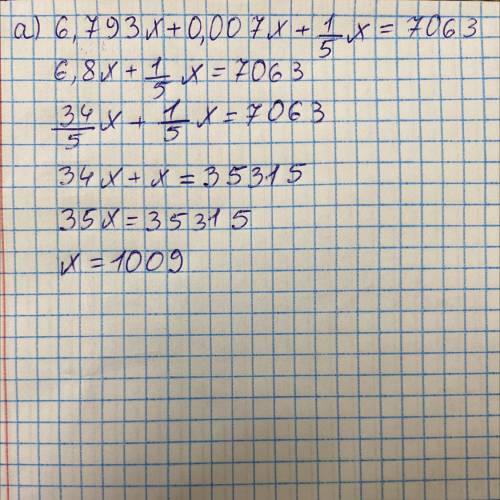 а) 6,793x+0,007x+1/5x=7063
6,8x+1/5x=7063
34/5x+1/5x=7063
34x+x=35315
35x=35315
x=1009